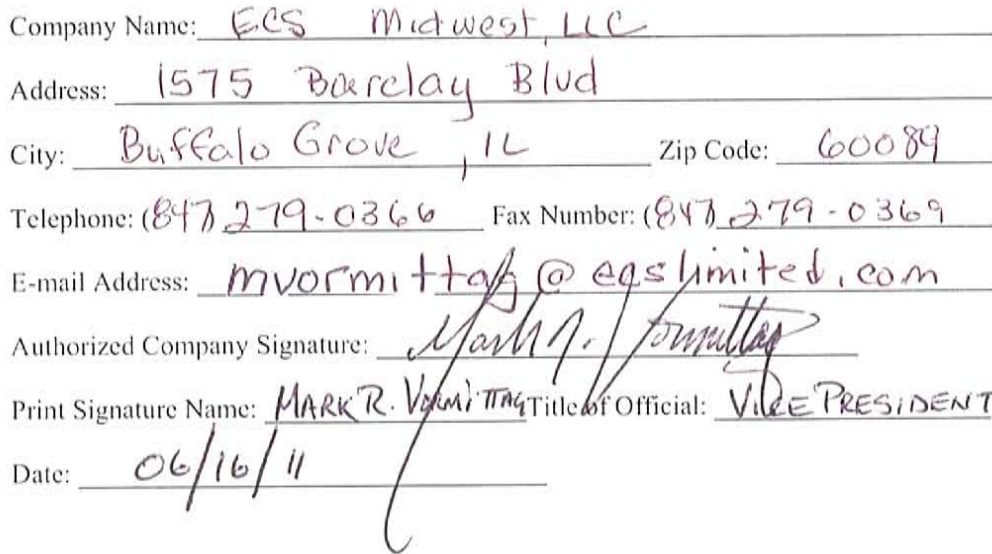 Company Name: ECS Midwest, LLC
Address: 1575 Barclay Blvd
City: Buffalo Grove, IL Zip Code: 60089
Telephone: (847) 279-0366 Fax Number: (847) 279-0369
E-mail Address: mvormittag@ecslimited.com
Authorized Company Signature: Mark R. Vormittag
Print Signature Name: MARK R. VORMITTAG Title of Official: VICE PRESIDENT
Date: 06/16/11